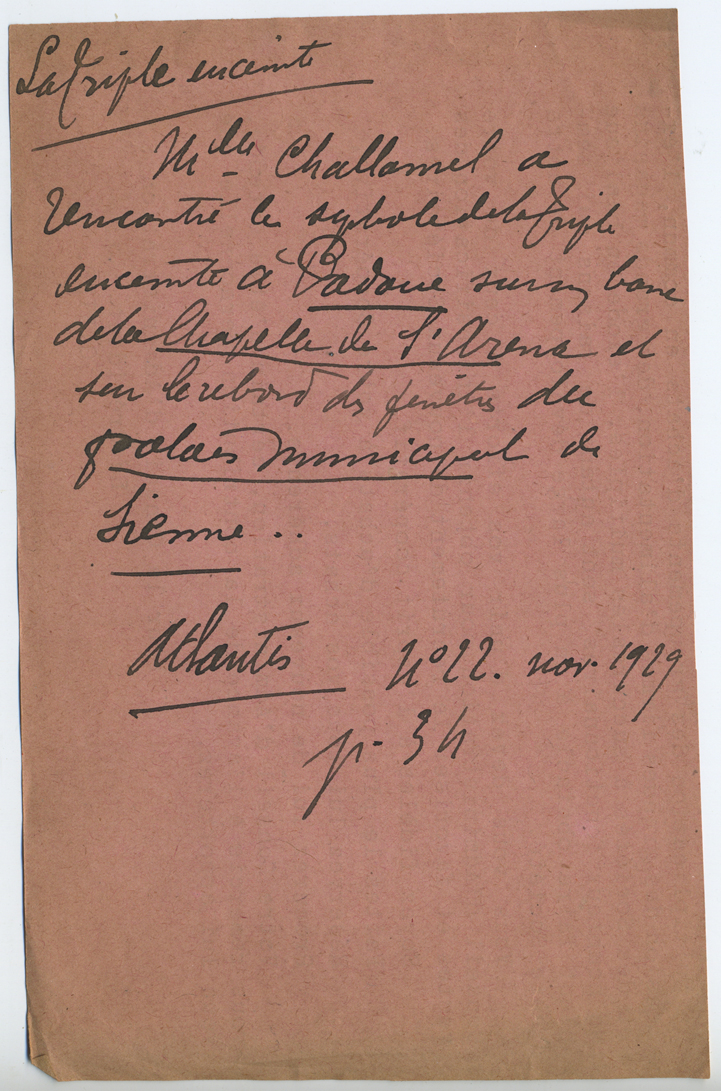 La Triple enceinte
Mlle Challamel a
rencontré le symbole de la Triple
enceinte à Padoue sur un banc
de la Chapelle de l'Arena et
sur le rebord des fenêtres du
palais municipal de
Sienne..
Atlantis n° 22. nov. 1929
p. 34